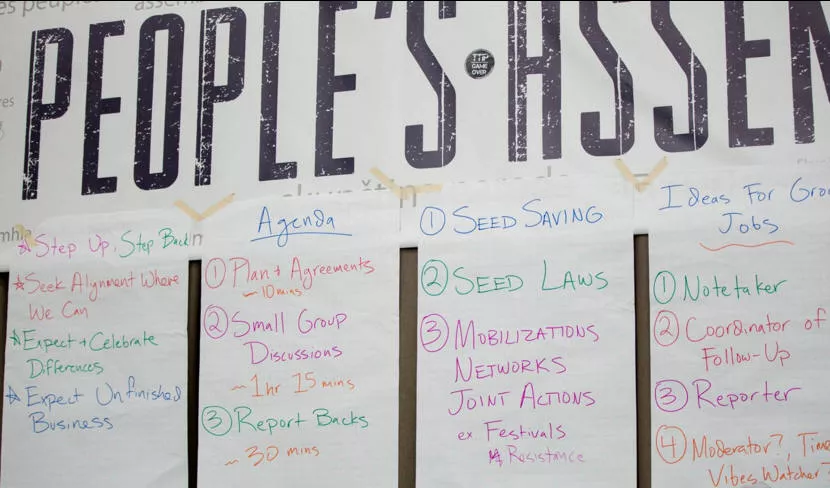 es peop
assem
PEOPLE'S ASSEM
TTIP
GAME
OVER
res
Step Up, Step Back
Seek Alynment Where
We Can
Expect + Celebrate
Differences
Expect Unfinished
Business
Agenda
① Plan + Agreements
~ 10 mins
② Small Group
Discussions
~ 1 hr 15 mins
③ Report Backs
~ 30 mins
① SEED SAVING
② SEED LAWS
③ MOBILIZATIONS
NETWORKS
JOINT ACTIONS
ex Festivals
Resistance
Ideas For Gro
Jobs
① Notetaker
② Coordinator of
Follow-Up
③ Reporter
④ Moderator?, Time
Vibes Watcher?